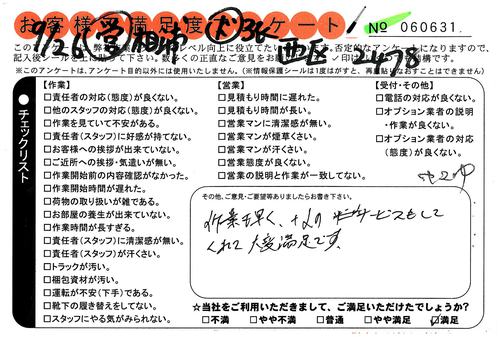 お客様満足度アンケート!
9/26 受 相 西区 2478
No 060631.
記入後シールを上に貼って下さい。数多くの正直なご意見をお
※このアンケートは、アンケート目的以外には使用いたしません。(※情報保護シールは1度はがすと、再度貼りなおすことはできません)
●チェックリスト
【作業】
□責任者の対応(態度)が良くない。
□他のスタッフの対応(態度)が良くない。
□作業を見ていて不安がある。
□責任者(スタッフ)に好感が持てない。
□お客様への挨拶が出来ていない。
□ご近所への挨拶・気遣いが無い。
□作業開始前の内容確認がなかった。
□作業開始時間が遅れた。
□荷物の取り扱いが雑である。
□お部屋の養生が出来ていない。
□作業時間が長すぎる。
□責任者(スタッフ)に清潔感が無い。
□責任者(スタッフ)が汗くさい。
□トラックが汚い。
□梱包資材が汚い。
□運転が不安(下手)である。
□靴下の履き替えをしてない。
□スタッフにやる気がみられない。
【営業】
□見積もり時間に遅れた。
□見積もり時間が長い。
□営業マンに清潔感が無い。
□営業マンが煙草くさい。
□営業マンが汗くさい。
□営業態度が良くない。
□営業の説明と作業が一致してない。
【受付・その他】
□電話の対応が良くない。
□オプション業者の説明・作業が良くない。
□オプション業者の対応(態度)が良くない。
その他、ご意見・ご要望等ありましたらお書き下さい。
作業も早く、+αのサービスもして
くれて大変満足です。
☆当社をご利用いただきまして、ご満足いただけたでしょうか?
□不満 □やや不満 □普通 □やや満足 ☑満足